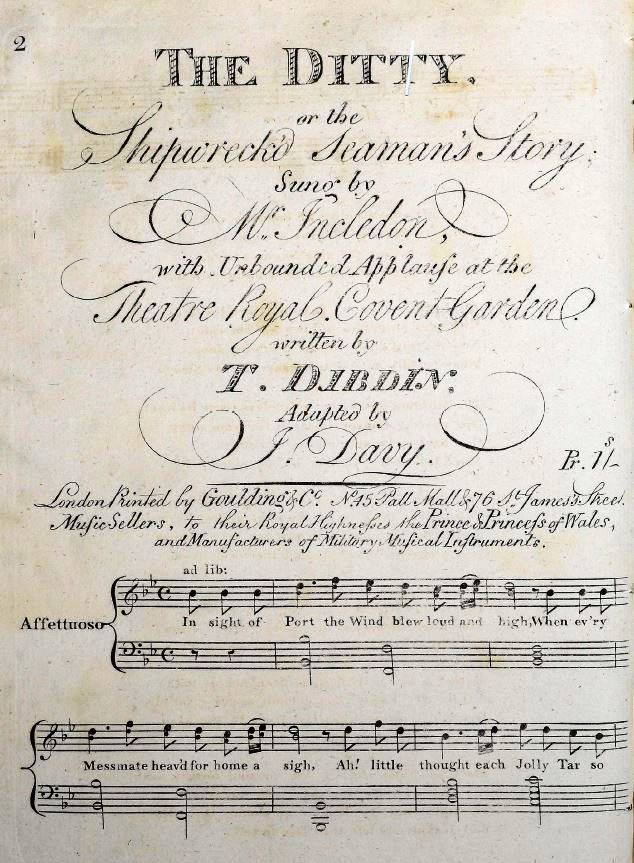 2
THE DITTY.
or the
Shipwreck'd Seaman's Story;
Sung by
Mr. Incledon,
with Unbounded Applause at the
Theatre Royal. Covent Garden.
written by
T. DIBDIN.
Adapted by
J. Davy.
Pr. 1s/-
London Printed by Goulding & Co. No. 45 Pall Mall & 76 St. James's Street.
Music Sellers, to their Royal Highnesses the Prince & Princess of Wales,
and Manufacturers of Military Musical Instruments.
ad lib:
Affettuoso
In sight of Port the Wind blew loud and high, When ev'ry
Messmate heav'd for home a sigh, Ah! little thought each Jolly Tar so